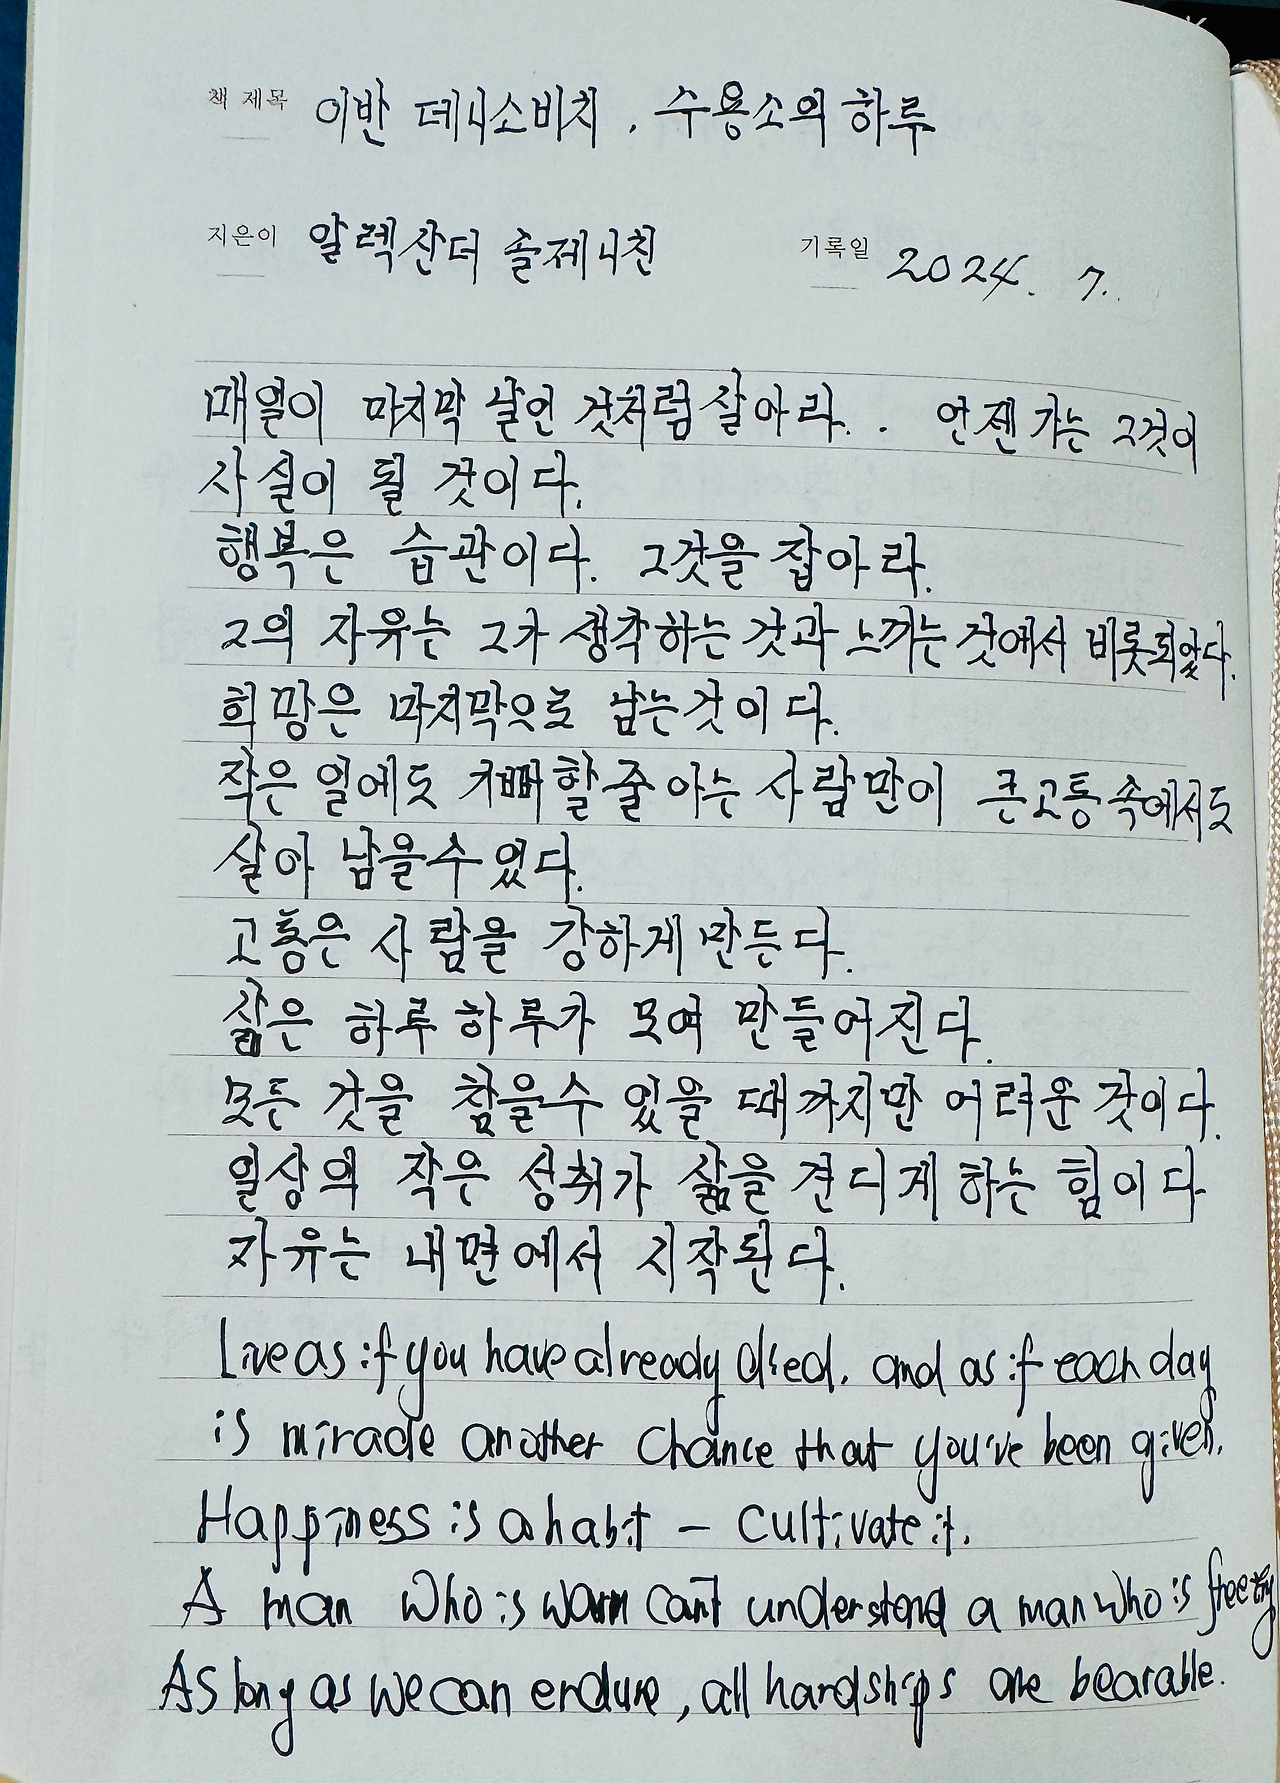 책 제목 이반 데니소비치, 수용소의 하루
지은이 알렉산더 솔제니친 기록일 2024. 7.
매일이 마지막 날인 것처럼 살아라. . 언젠가는 그것이
사실이 될 것이다.
행복은 습관이다. 그것을 잡아라.
그의 자유는 그가 생각하는 것과 느끼는 것에서 비롯되었다.
희망은 마지막으로 남는것이다.
작은 일에도 기뻐할줄 아는 사람만이 큰고통속에서도
살아 남을수 있다.
고통은 사람을 강하게 만든다.
삶은 하루하루가 모여 만들어진다.
모든 것을 참을수 있을 때까지만 어려운 것이다.
일상의 작은 성취가 삶을 견디게 하는 힘이다
자유는 내면에서 시작된다.
Live as if you have already died. and as if each day
is miracle another chance that you've been given.
Happiness is a habit - cultivate it.
A man who is warm can't understand a man who is
As long as we can endure, all hardships are bearable.